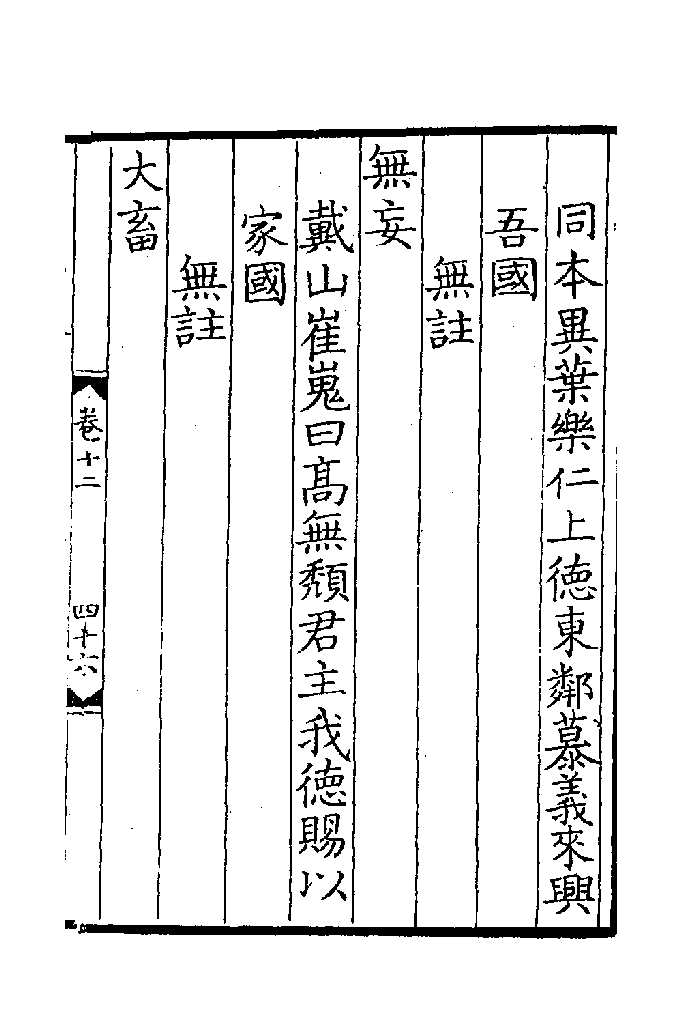 同本異葉樂仁上徳東鄰慕義來興
吾國
無註
無妄
戴山崔嵬曰高無頽君主我徳賜以
家國
無註
大畜
卷十二
四十六